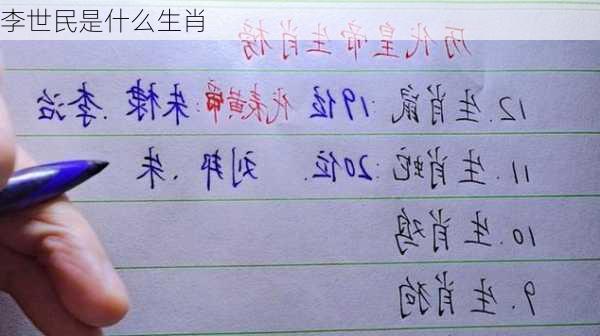 李世民是什么生肖
历代皇帝生肖榜
12.生肖鼠:19位 代表黄帝:朱棣.李治
11.生肖蛇:20位. 刘邦、朱
10.生肖鸡
9.生肖狗